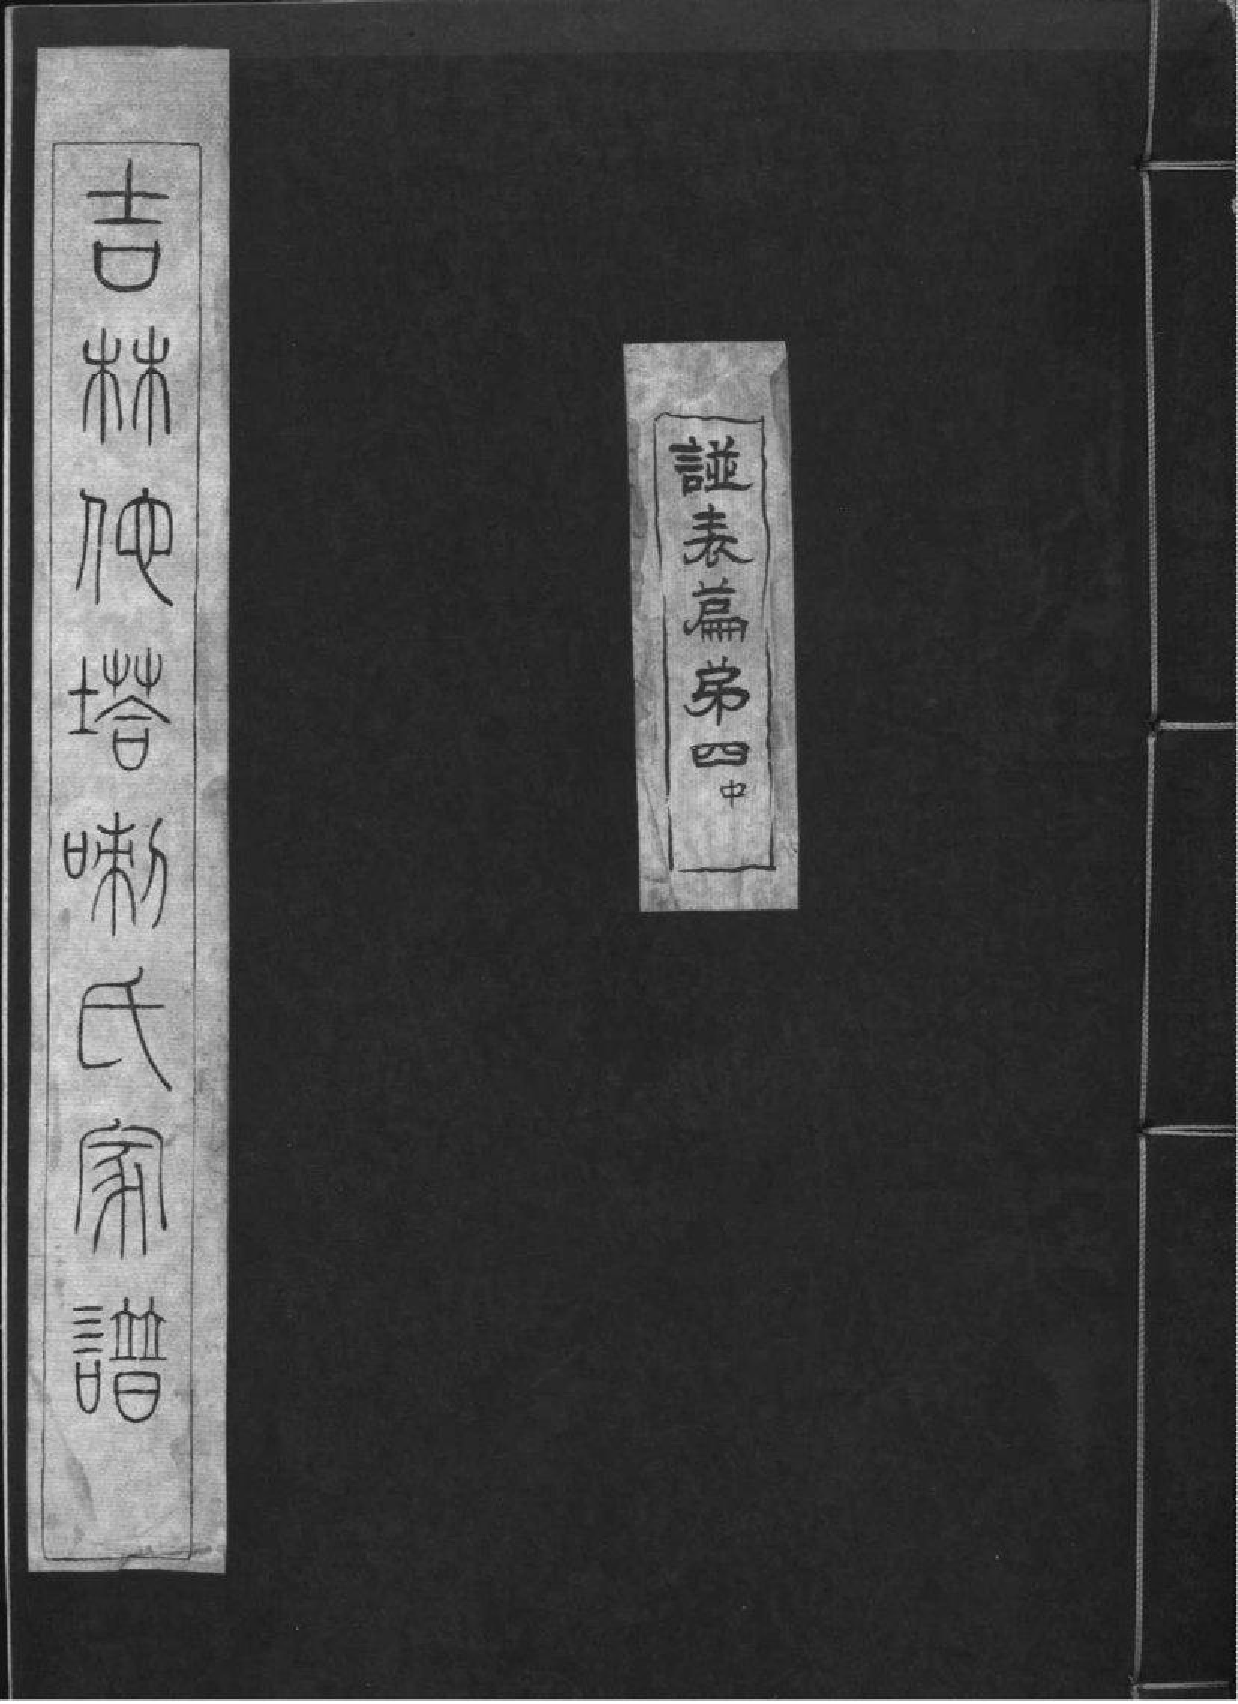 吉林他塔喇氏家譜
譜表篇弟四中